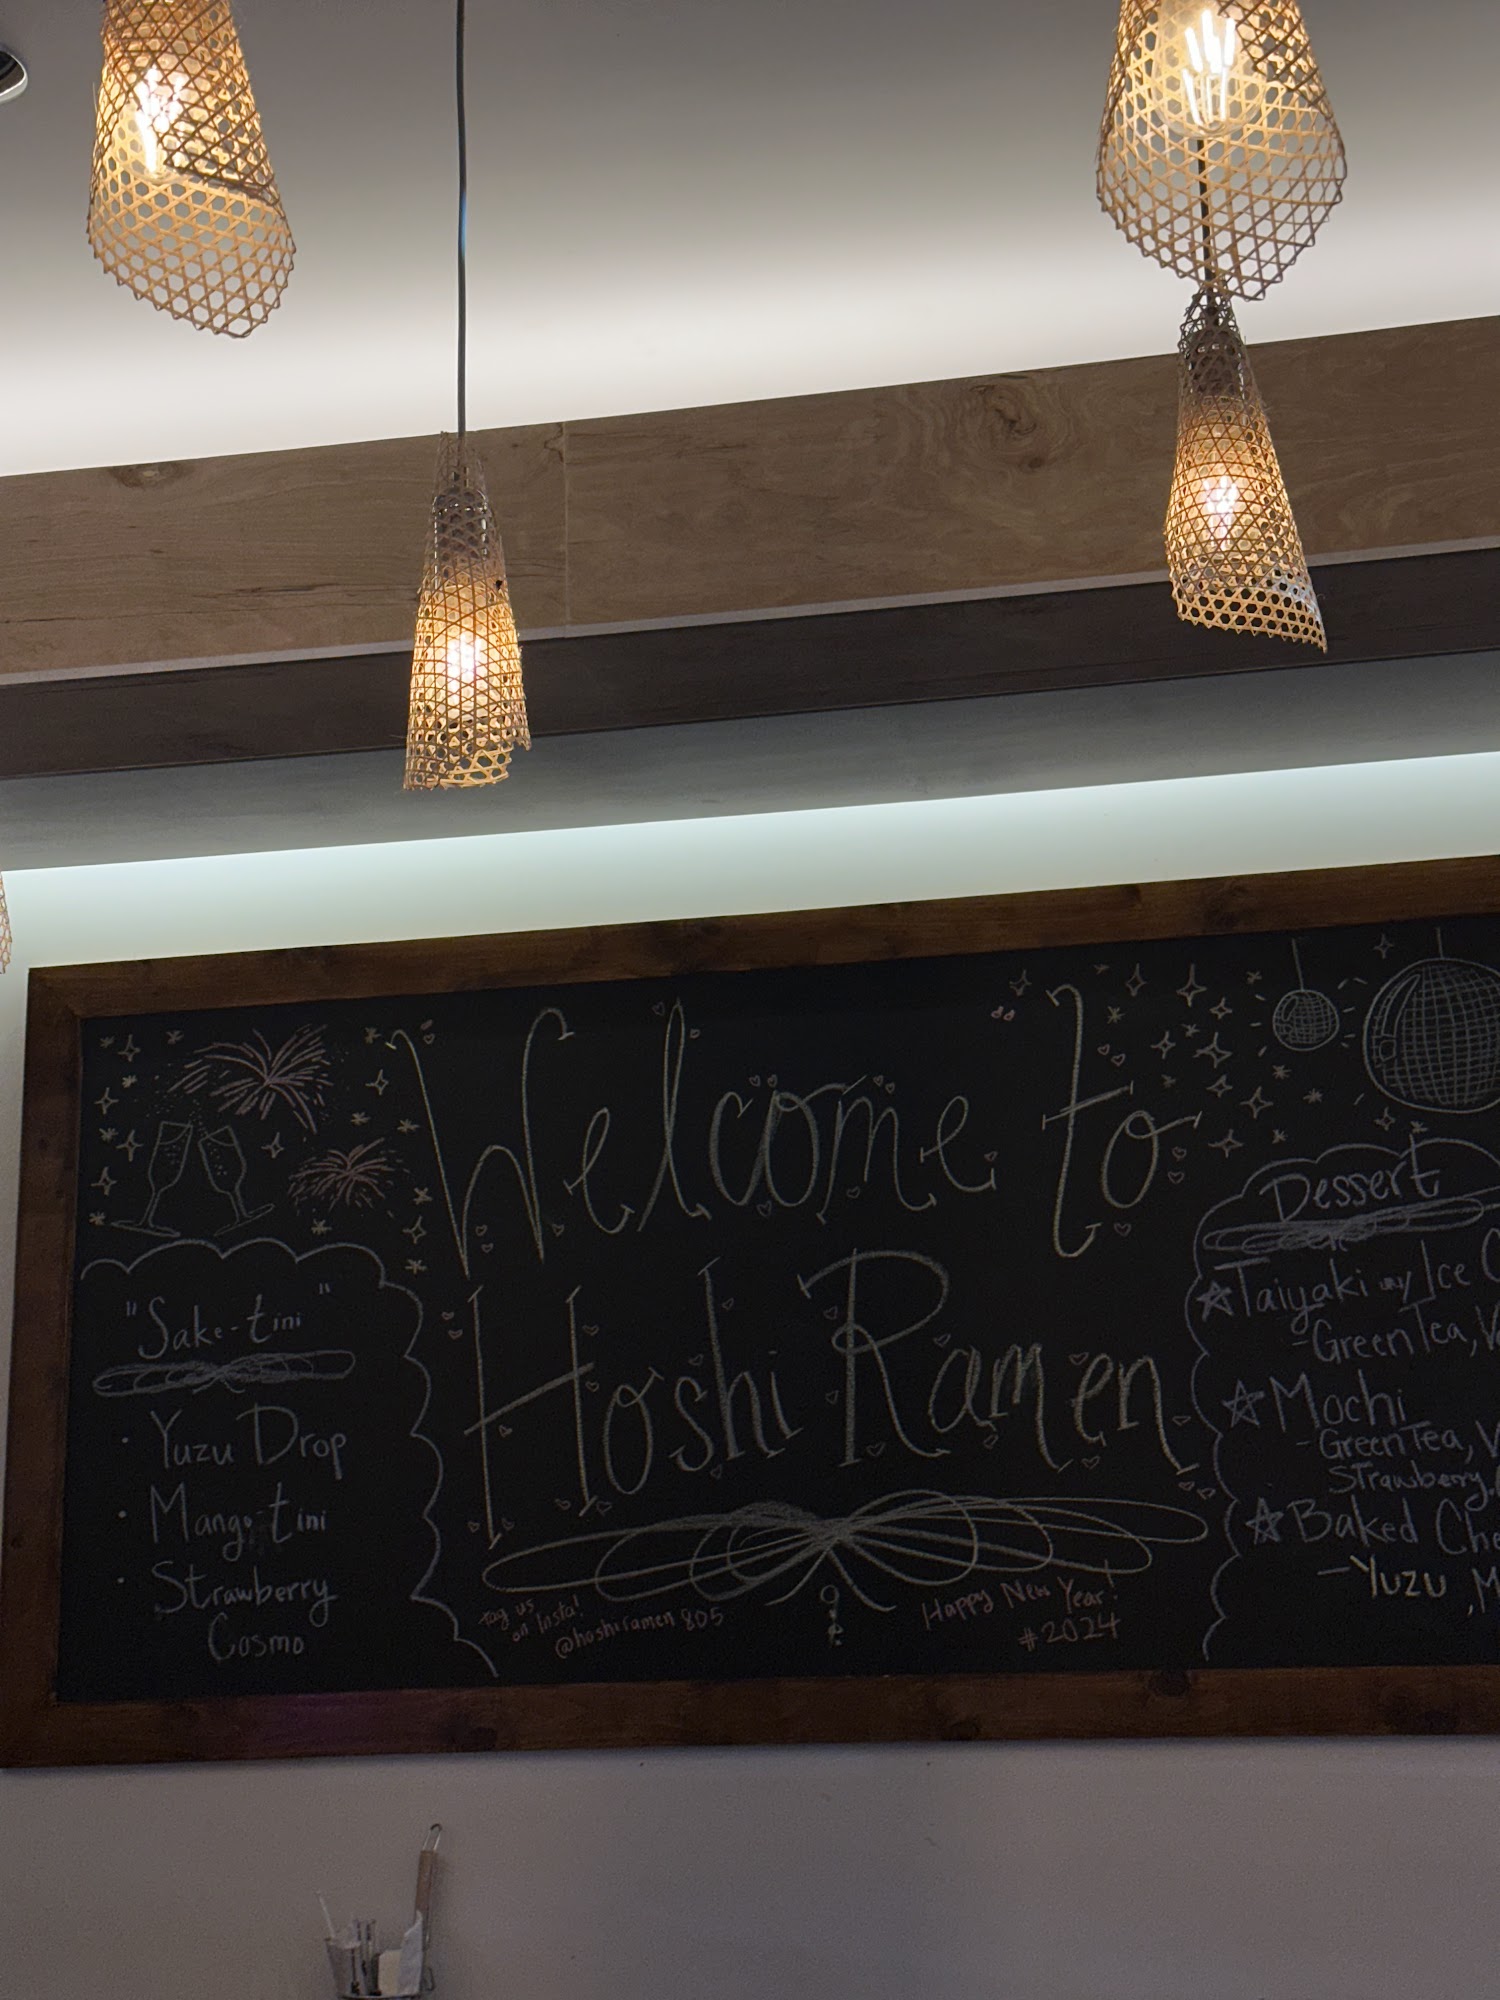 Welcome to
Hoshi Ramen
"Sake-tini"
· Yuzu Drop
· Mango-tini
· Strawberry
Cosmo
tag us
on Insta!
@hoshiramen805
Happy New Year!
#2024
Dessert
Taiyaki w/ Ice
- Green Tea,
Mochi
- Green Tea,
Strawberry,
Baked
- Yuzu,